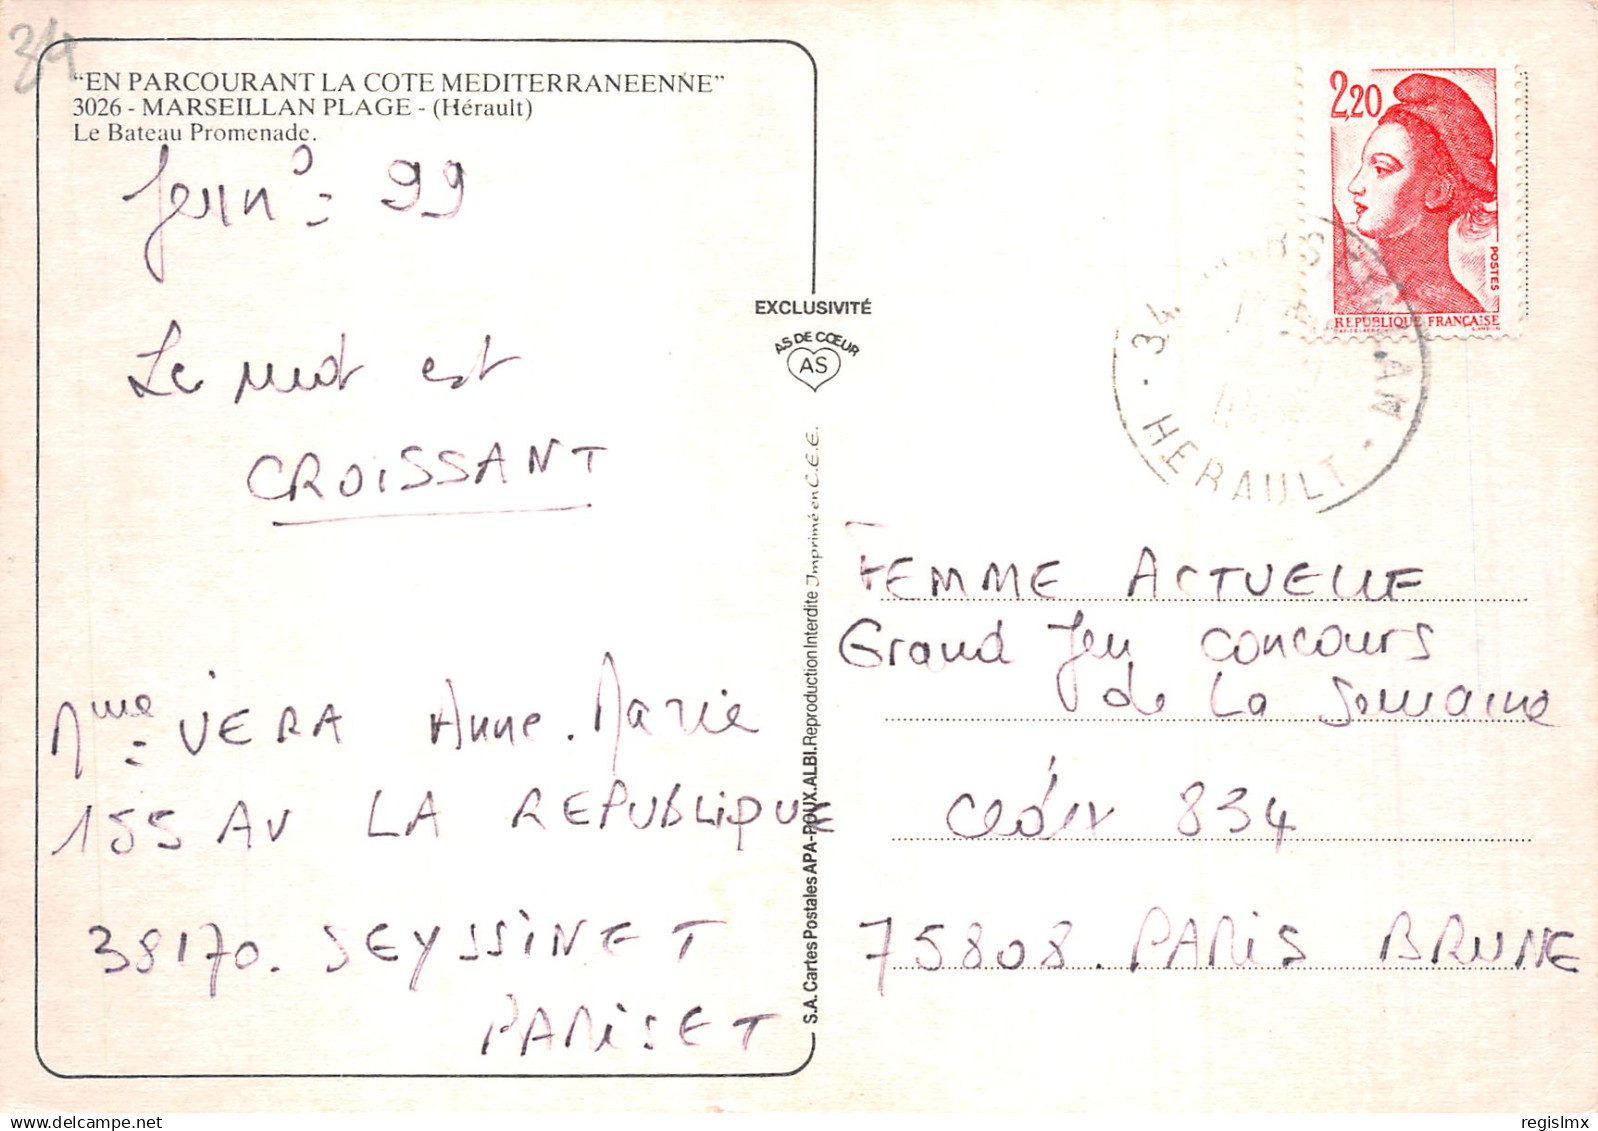 34
"EN PARCOURANT LA COTE MEDITERRANEENNE"
3026 - MARSEILLAN PLAGE - (Hérault)
Le Bateau Promenade.
Jeu n° = 99
Le mot est
CROISSANT
Mme VERA Anne-Marie
155 AV LA REPUBLIQUE
38170. SEYSSINET
PARISET
EXCLUSIVITÉ
AS DE CŒUR
AS
S.A. Cartes Postales APA-POUX. ALBI. Reproduction Interdite Imprimé en C.E.E.
2,20
POSTES
REPUBLIQUE FRANÇAISE
34 MARSEILLAN
HERAULT
FEMME ACTUELLE
Grand Jeu concours
de La Semaine
Cédex 834
75808. PARIS BRUNE
regislmx